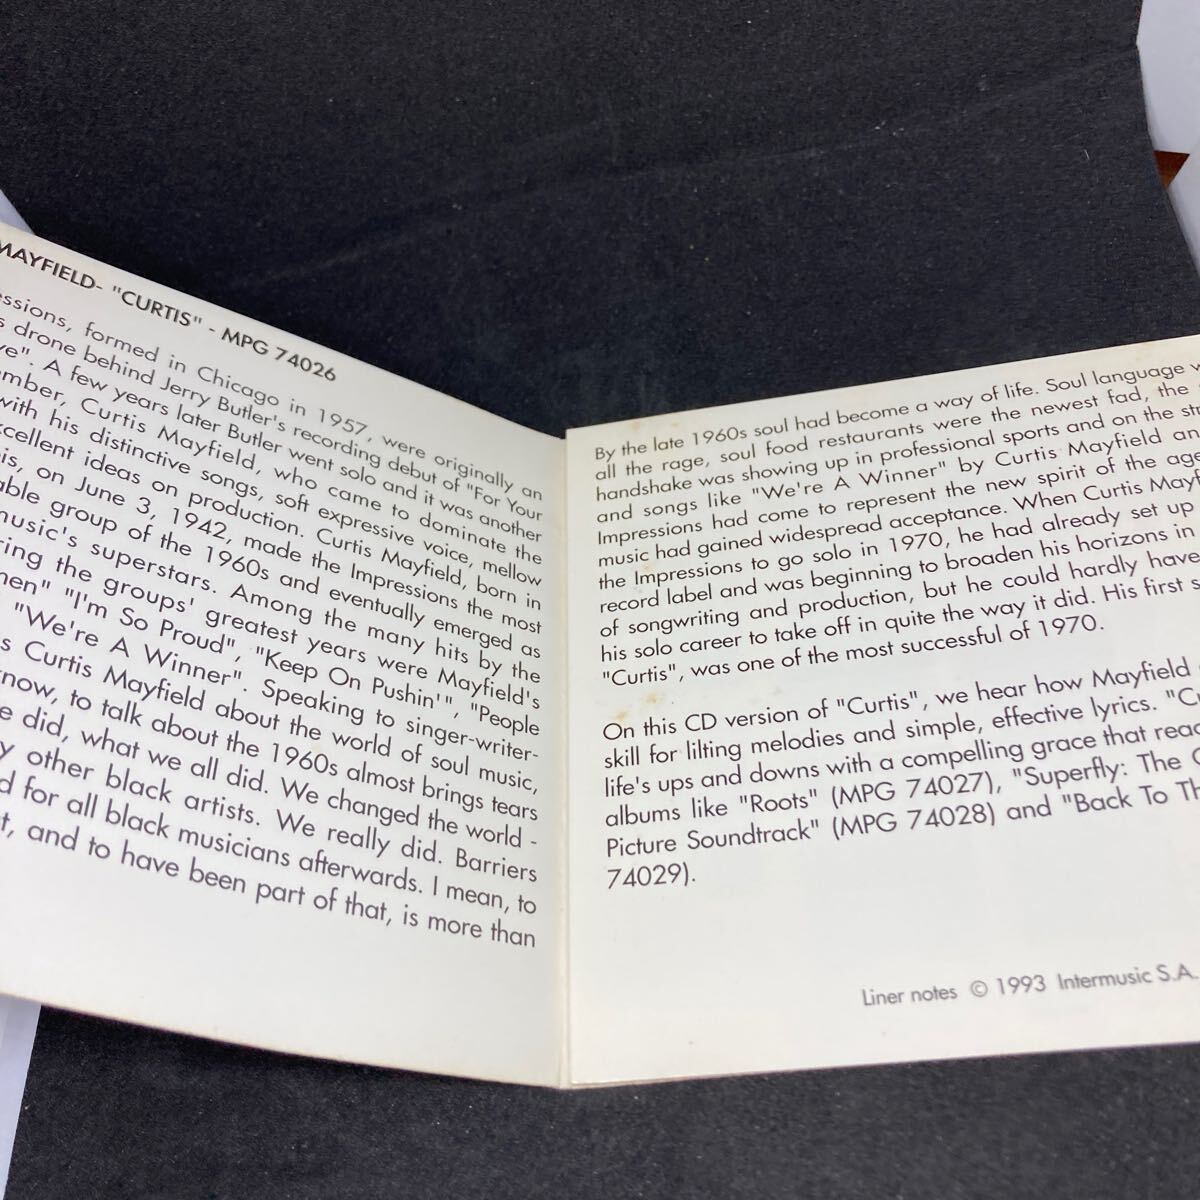 MAYFIELD- "CURTIS" - MPG 74026
formed in Chicago in 1957, were originally an
drone behind Jerry Butler's recording debut of "For Your
A few years later Butler went solo and it was another
Curtis Mayfield, who came to dominate the
with his distinctive songs, soft expressive voice, mellow
excellent ideas on production. Curtis Mayfield, born in
on June 3, 1942, made the Impressions the most
group of the 1960s and eventually emerged as
music's superstars. Among the many hits by the
the groups' greatest years were Mayfield's
"I'm So Proud", "Keep On Pushin'", "People
"We're A Winner". Speaking to singer-writer-
Curtis Mayfield about the world of soul music,
know, to talk about the 1960s almost brings tears
did, what we all did. We changed the world -
other black artists. We really did. Barriers
for all black musicians afterwards. I mean, to
and to have been part of that, is more than
By the late 1960s soul had become a way of life. Soul language
all the rage, soul food restaurants were the newest fad, the
handshake was showing up in professional sports and on the
and songs like "We're A Winner" by Curtis Mayfield
Impressions had come to represent the new spirit of the
music had gained widespread acceptance. When Curtis
the Impressions to go solo in 1970, he had already set up
record label and was beginning to broaden his horizons in
of songwriting and production, but he could hardly have
his solo career to take off in quite the way it did. His first
"Curtis", was one of the most successful of 1970.
On this CD version of "Curtis", we hear how Mayfield
skill for lilting melodies and simple, effective lyrics.
life's ups and downs with a compelling grace that
albums like "Roots" (MPG 74027), "Superfly: The
Picture Soundtrack" (MPG 74028) and "Back To
74029).
Liner notes © 1993 Intermusic S.A.